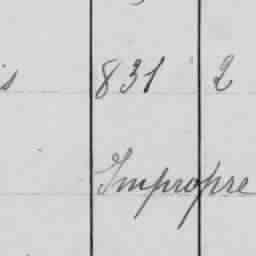 s 831 2
Impropre